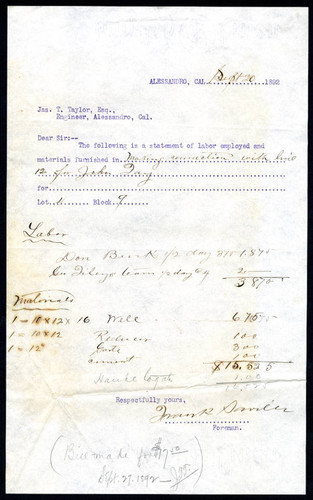 ALESSANDRO, CAL. Sept 20 1892
Jas. T. Taylor, Esq.,
Engineer, Alessandro, Cal.
Dear Sir:--
The following is a statement of labor employed and
materials furnished in Making connection with line
12 for John
for
Lot 11 Block 9
Labor
Don 1/2 day 375 1.875
team 1/2 day @ 4 2
3 875
Materials
1 - 10 x 12 x 16 Well 6.75
1 - 10 x 12 Reducer 1 00
1 - 12" Gate 3 00
cement 1 00
15.
Respectfully yours,
Frank
Foreman.
(Bill made for
Sept. 27. 1892